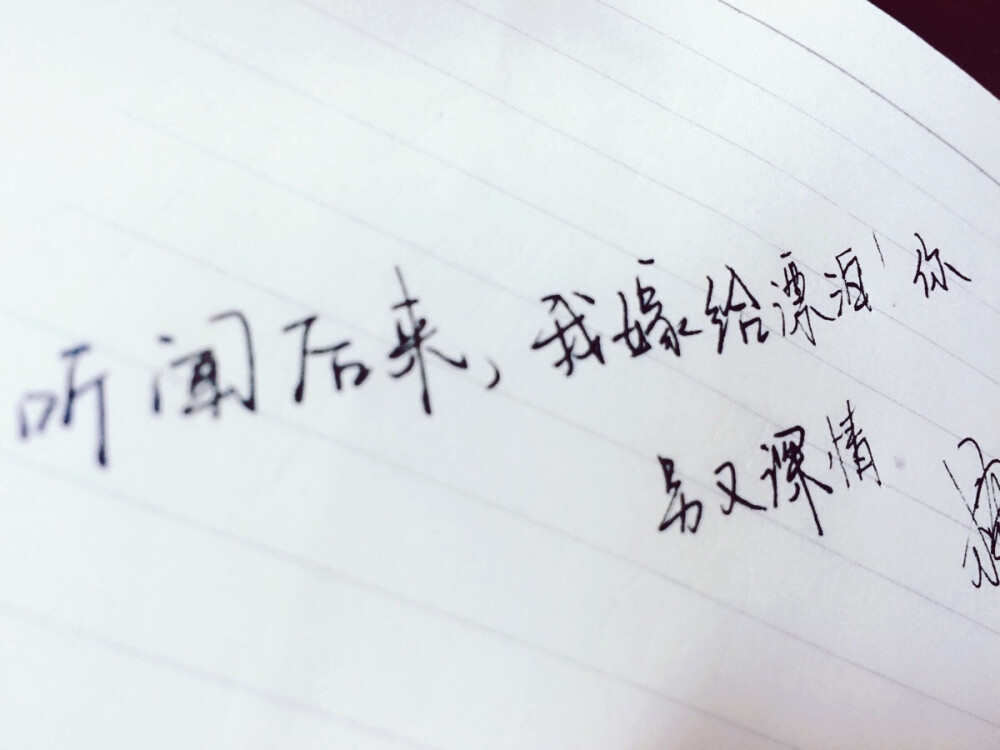 听闻后来,我嫁给漂泊'你
另又深情